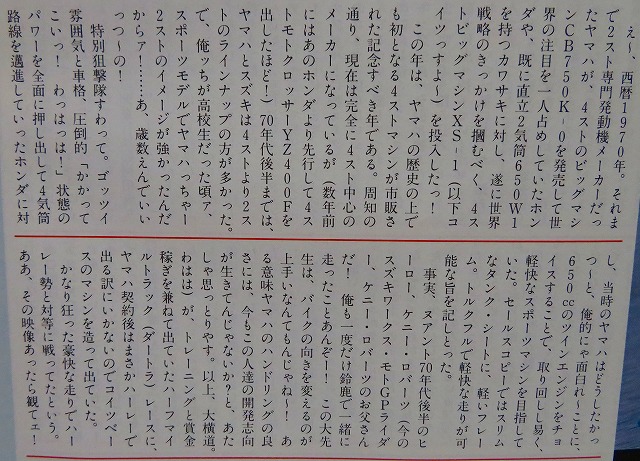 え～、西暦1970年。それま
で2スト専門発動機メーカーだっ
たヤマハが、4ストのビッグマシ
ンCB750K-0を発売して世
界の注目を一人占めしていたホン
ダや、既に直立2気筒650W1
を持つカワサキに対し、遂に世界
戦略のきっかけを摑むべく、4ス
トビッグマシンXS-1（以下コ
イツっすよ～）を投入したっ！
この年は、ヤマハの歴史の上で
も初となる4ストマシンが市販さ
れた記念すべき年である。周知の
通り、現在は完全に4スト中心の
メーカーになっているが（数年前
にはあのホンダより先行して4ス
トモトクロッサーYZ400Fを
出したほど！）70年代後半までは、
ヤマハとスズキは4ストより2ス
トのラインナップの方が多かった。
で、俺っちが高校生だった頃ァ、
スポーツモデルでヤマハっちゃー
2ストのイメージが強かったんだ
からァ！……あ、歳数えんでいい
っつ～の！
特別狙撃隊すわって。ゴッツイ
雰囲気と車格、圧倒的「かかって
こいっ！わっはっは！」状態の
パワーを全面に押し出して4気筒
路線を邁進していったホンダに対
し、当時のヤマハはどうしたかっ
つ～と、俺的にゃ面白れ～ことに、
650ccのツインエンジンをチョ
イスすることで、取り回し易く、
軽快なスポーツマシンを目指して
いた。セールスコピーではスリム
なタンク、シートに、軽いフレー
ム。トルクフルで軽快な走りが可
能な旨を記しとった。
事実、ヌアント70年代後半のヒ
ーロー、ケニー・ロバーツ（今の
スズキワークス・モトGPライダ
ー、ケニー・ロバーツのお父さん
だ！俺も一度だけ鈴鹿で一緒に
走ったことあんぞ！）この大先
生は、バイクの向きを変えるのが
上手いなんてもんじゃね～！あ
る意味ヤマハのハンドリングの良
さには、今もこの人達の開発志向
が生きてんじゃないか？と、あた
しゃ思っとりやす。以上、大横道。
わはは）が、トレーニングと賞金
稼ぎを兼ねて出ていたハーフマイ
ルトラック（ダートラ）レースに、
ヤマハ契約後はまさかハーレーで
出る訳にいかないのでコイツベー
スのマシンを造って出ていた。
かなり狂った豪快な走りでハー
レー勢と対等に戦ってたという。
ああ、その映像あったら観てェ！